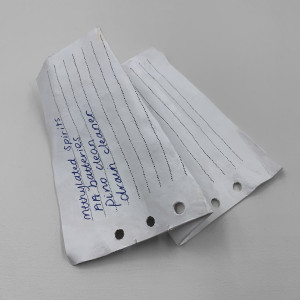 methylated spirits
AA batteries
Pine clean
drain cleaner